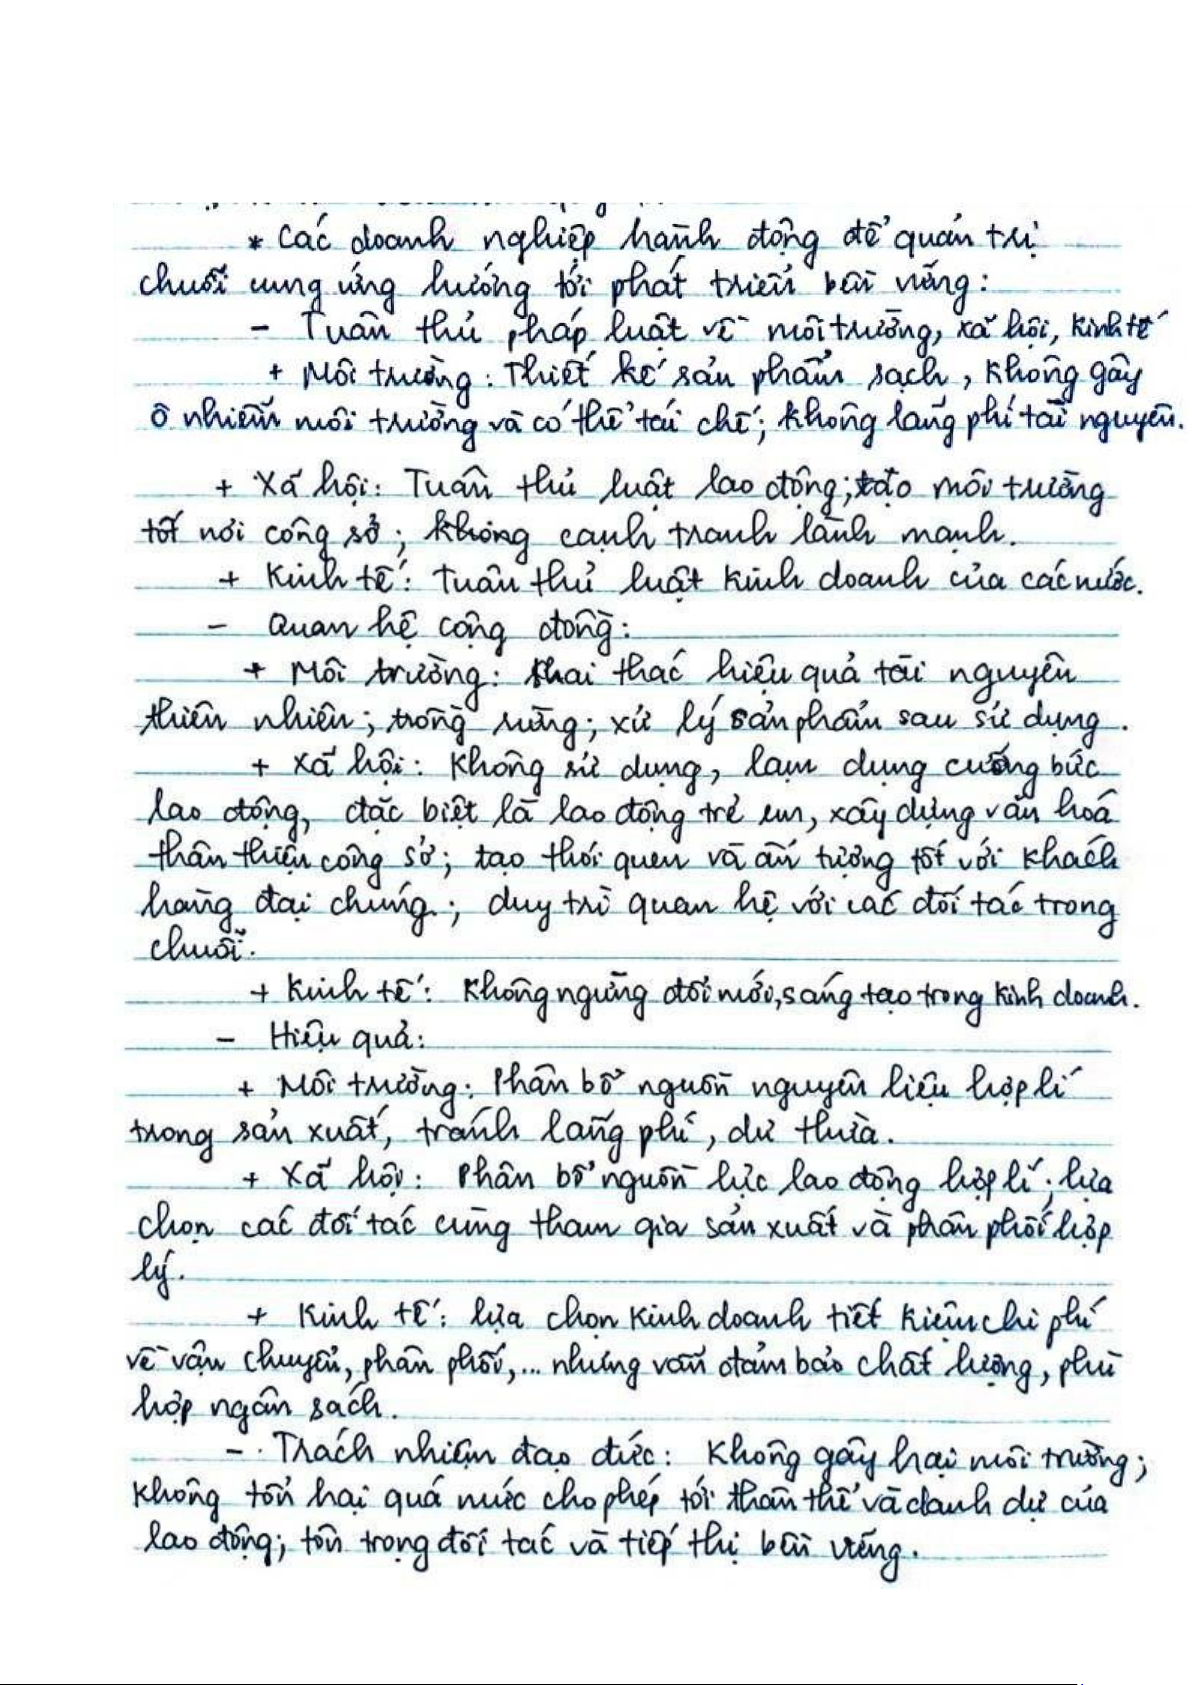 * Các doanh nghiệp hành động để quản trị
chuỗi cung ứng hướng tới phát triển bền vững:
- Tuân thủ pháp luật về môi trường, xã hội, kinh tế
+ Môi trường: Thiết kế sản phẩm sạch, không gây
ô nhiễm môi trường và có thể tái chế; không lãng phí tài nguyên.
+ Xã hội: Tuân thủ luật lao động; tạo môi trường
tốt nơi công sở; không cạnh tranh lành mạnh.
+ Kinh tế: Tuân thủ luật kinh doanh của các nước.
- Quan hệ cộng đồng:
+ Môi trường: khai thác hiệu quả tài nguyên
thiên nhiên; trồng rừng; xử lý sản phẩm sau sử dụng.
+ Xã hội: Không sử dụng, lạm dụng cưỡng bức
lao động, đặc biệt là lao động trẻ em, xây dựng văn hoá
thân thiện công sở; tạo thói quen và ấn tượng tốt với khách
hàng đại chúng; duy trì quan hệ với các đối tác trong
chuỗi.
+ Kinh tế: Không ngừng đổi mới, sáng tạo trong kinh doanh.
- Hiệu quả:
+ Môi trường: Phân bổ nguồn nguyên liệu hợp lí
trong sản xuất, tránh lãng phí, dư thừa.
+ Xã hội: Phân bổ nguồn lực lao động hợp lí; lựa
chọn các đối tác cùng tham gia sản xuất và phân phối hợp
lý.
+ Kinh tế: lựa chọn kinh doanh tiết kiệm chi phí
về vận chuyển, phân phối,... nhưng vẫn đảm bảo chất lượng, phù
hợp ngân sách.
- Trách nhiệm đạo đức: Không gây hại môi trường;
không tổn hại quá mức cho phép tới thân thể và danh dự của
lao động; tôn trọng đối tác và tiếp thị bền vững.